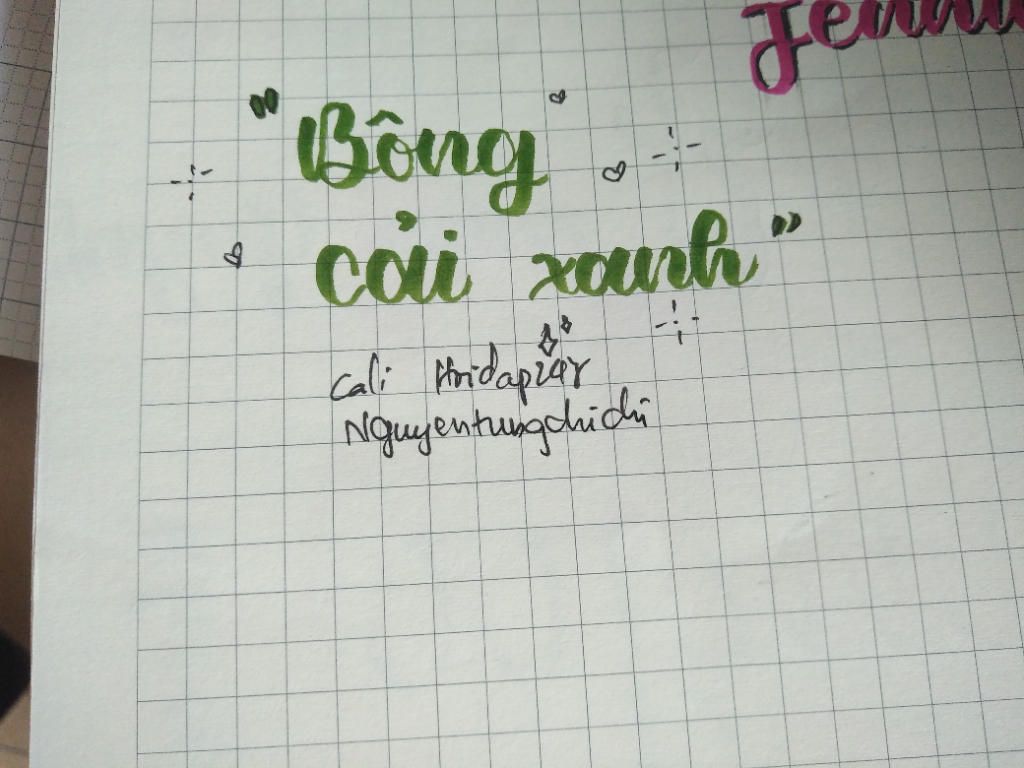 Jenni
"Bông
cải xanh"
Cali Hridap24r
Nguyentungchichi